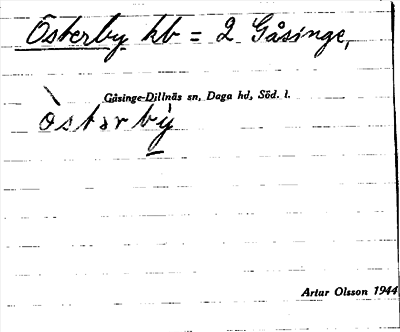 Österby hb = 2 Gåsinge,
Gåsinge-Dillnäs sn, Daga hd, Söd. l.
òstərbỳ
Artur Olsson 1944